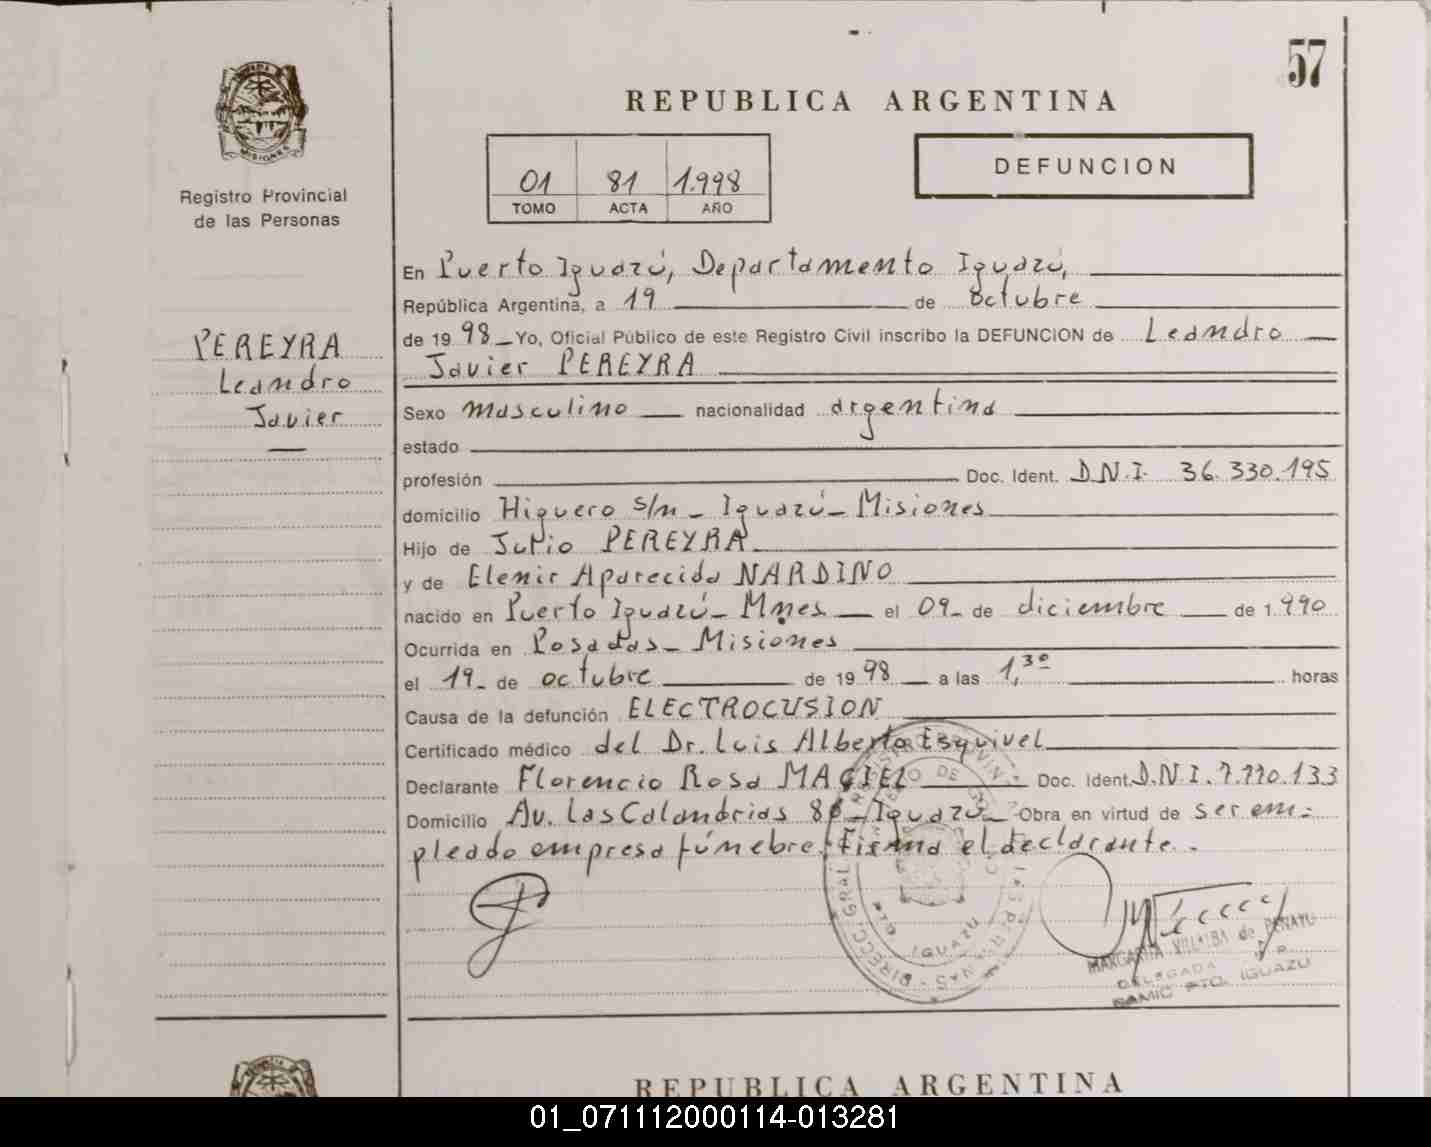 57
REPUBLICA ARGENTINA
MISIONES
Registro Provincial
de las Personas
01 81 1.998
TOMO ACTA AÑO
DEFUNCION
PEREYRA
Leandro
Javier
En Puerto Iguazú, Departamento Iguazú,
República Argentina, a 19 de octubre
de 1998 Yo, Oficial Público de este Registro Civil inscribo la DEFUNCION de Leandro
Javier PEREYRA
Sexo masculino nacionalidad argentina
estado
profesión Doc. Ident. D.N.I. 36.330.195
domicilio Higuero s/n - Iguazú - Misiones
Hijo de Julio PEREYRA
y de Elenir Aparecida NARDINO
nacido en Puerto Iguazú - Mnes el 09 - de diciembre de 1.990
Ocurrida en Posadas - Misiones
el 19 - de octubre de 1998 a las 1,30 horas
Causa de la defunción ELECTROCUSION
Certificado médico del Dr. Luis Alberto Esquivel
Declarante Florencio Rosa MACIEL Doc. Ident. D.N.I.
Domicilio Av. Las Calandrias - Iguazú - Obra en virtud de ser em-
pleado empresa fúnebre. Firma el declarante.
DIRECC. GRAL.
IGUAZU
MARGARITA VILLALBA de
DELEGADA
SAMIC PTO. IGUAZU
REPUBLICA ARGENTINA
01_071112000114-013281